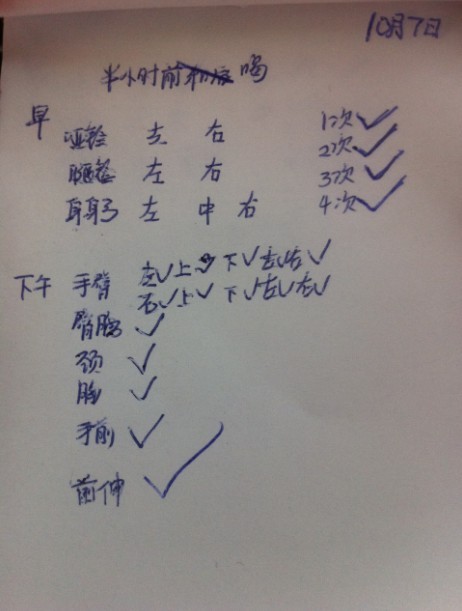 10月7日
半小时前 喝
早
左 右 1次✓
左 右 2次✓
左 中 右 3次✓
4次✓
下午 手臂 左✓上✓下✓左✓右✓
右✓上✓下✓左✓右✓
臂胸✓
颈✓
胸✓
手前✓
前伸✓